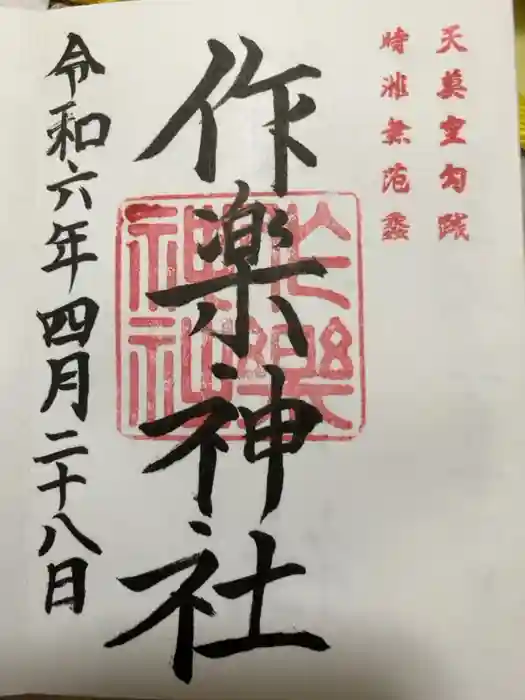 天莫空勾践
時非無范蠡
作楽神社
令和六年四月二十八日
作楽神社